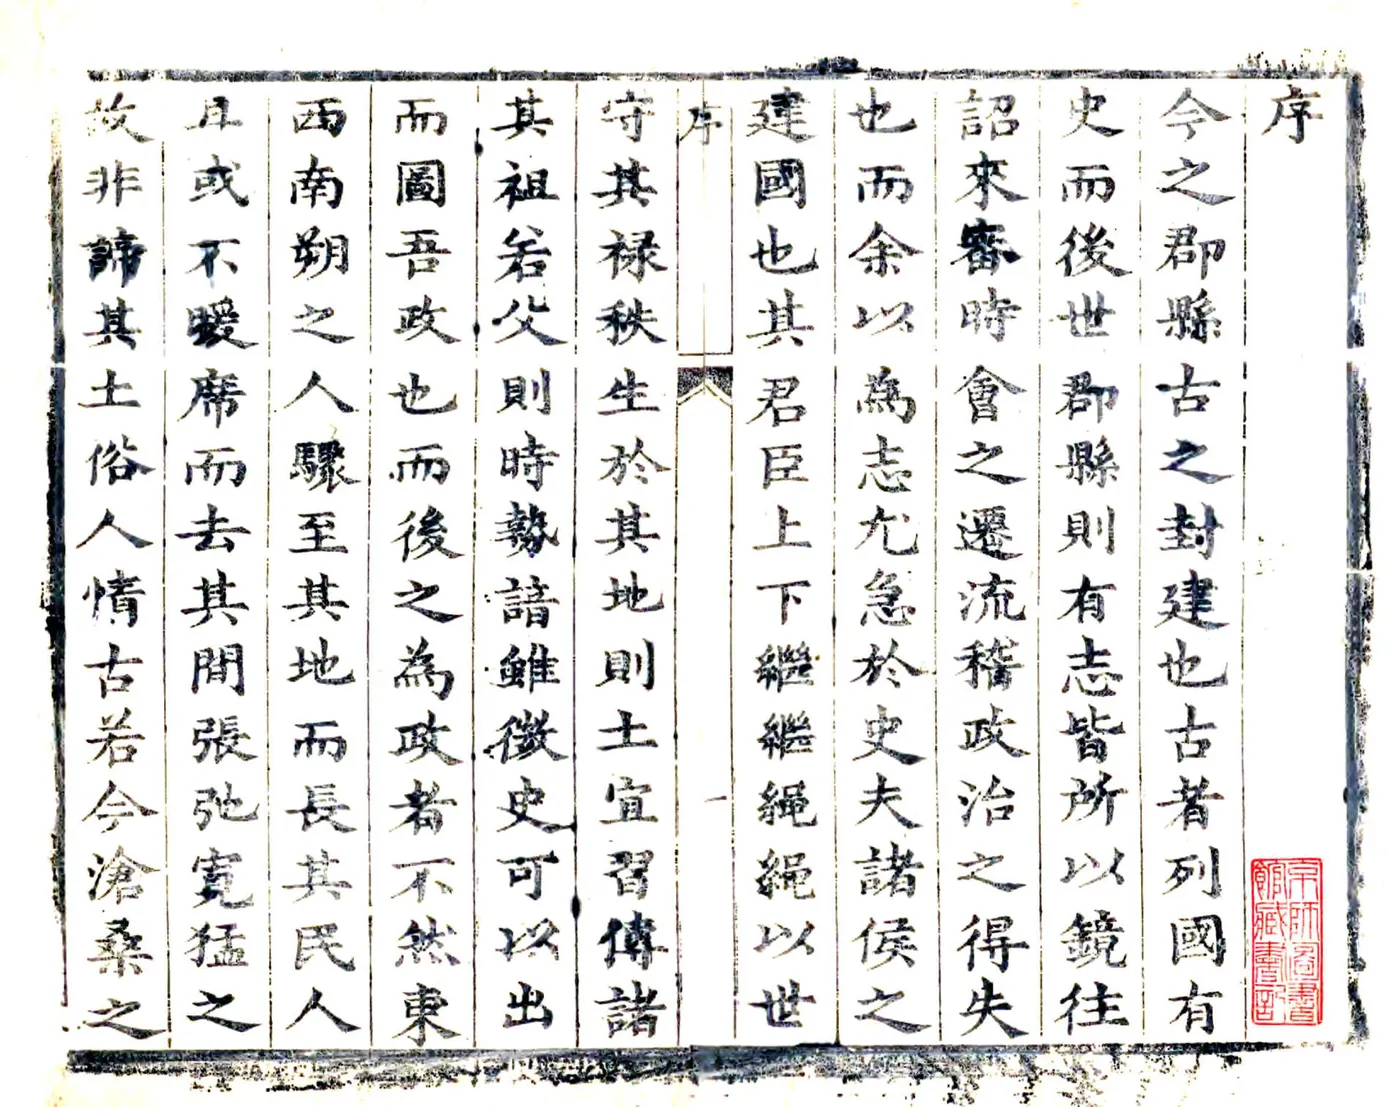 序
今之郡縣古之封建也古者列國有
史而後世郡縣則有志皆所以鏡往
詔來審時會之遷流稽政治之得失
也而余以為志尤急於史夫諸侯之
建國也其君臣上下繼繼繩繩以世
序
一
守其禄秩生於其地則土宜習傳諸
其祖若父則時勢諳雖微史可以出
而圖吾政也而後之為政者不然東
西南朔之人驟至其地而長其民人
且或不暖席而去其間張弛寛猛之
故非諦其土俗人情古若今滄桑之
京師圖書
館藏書記